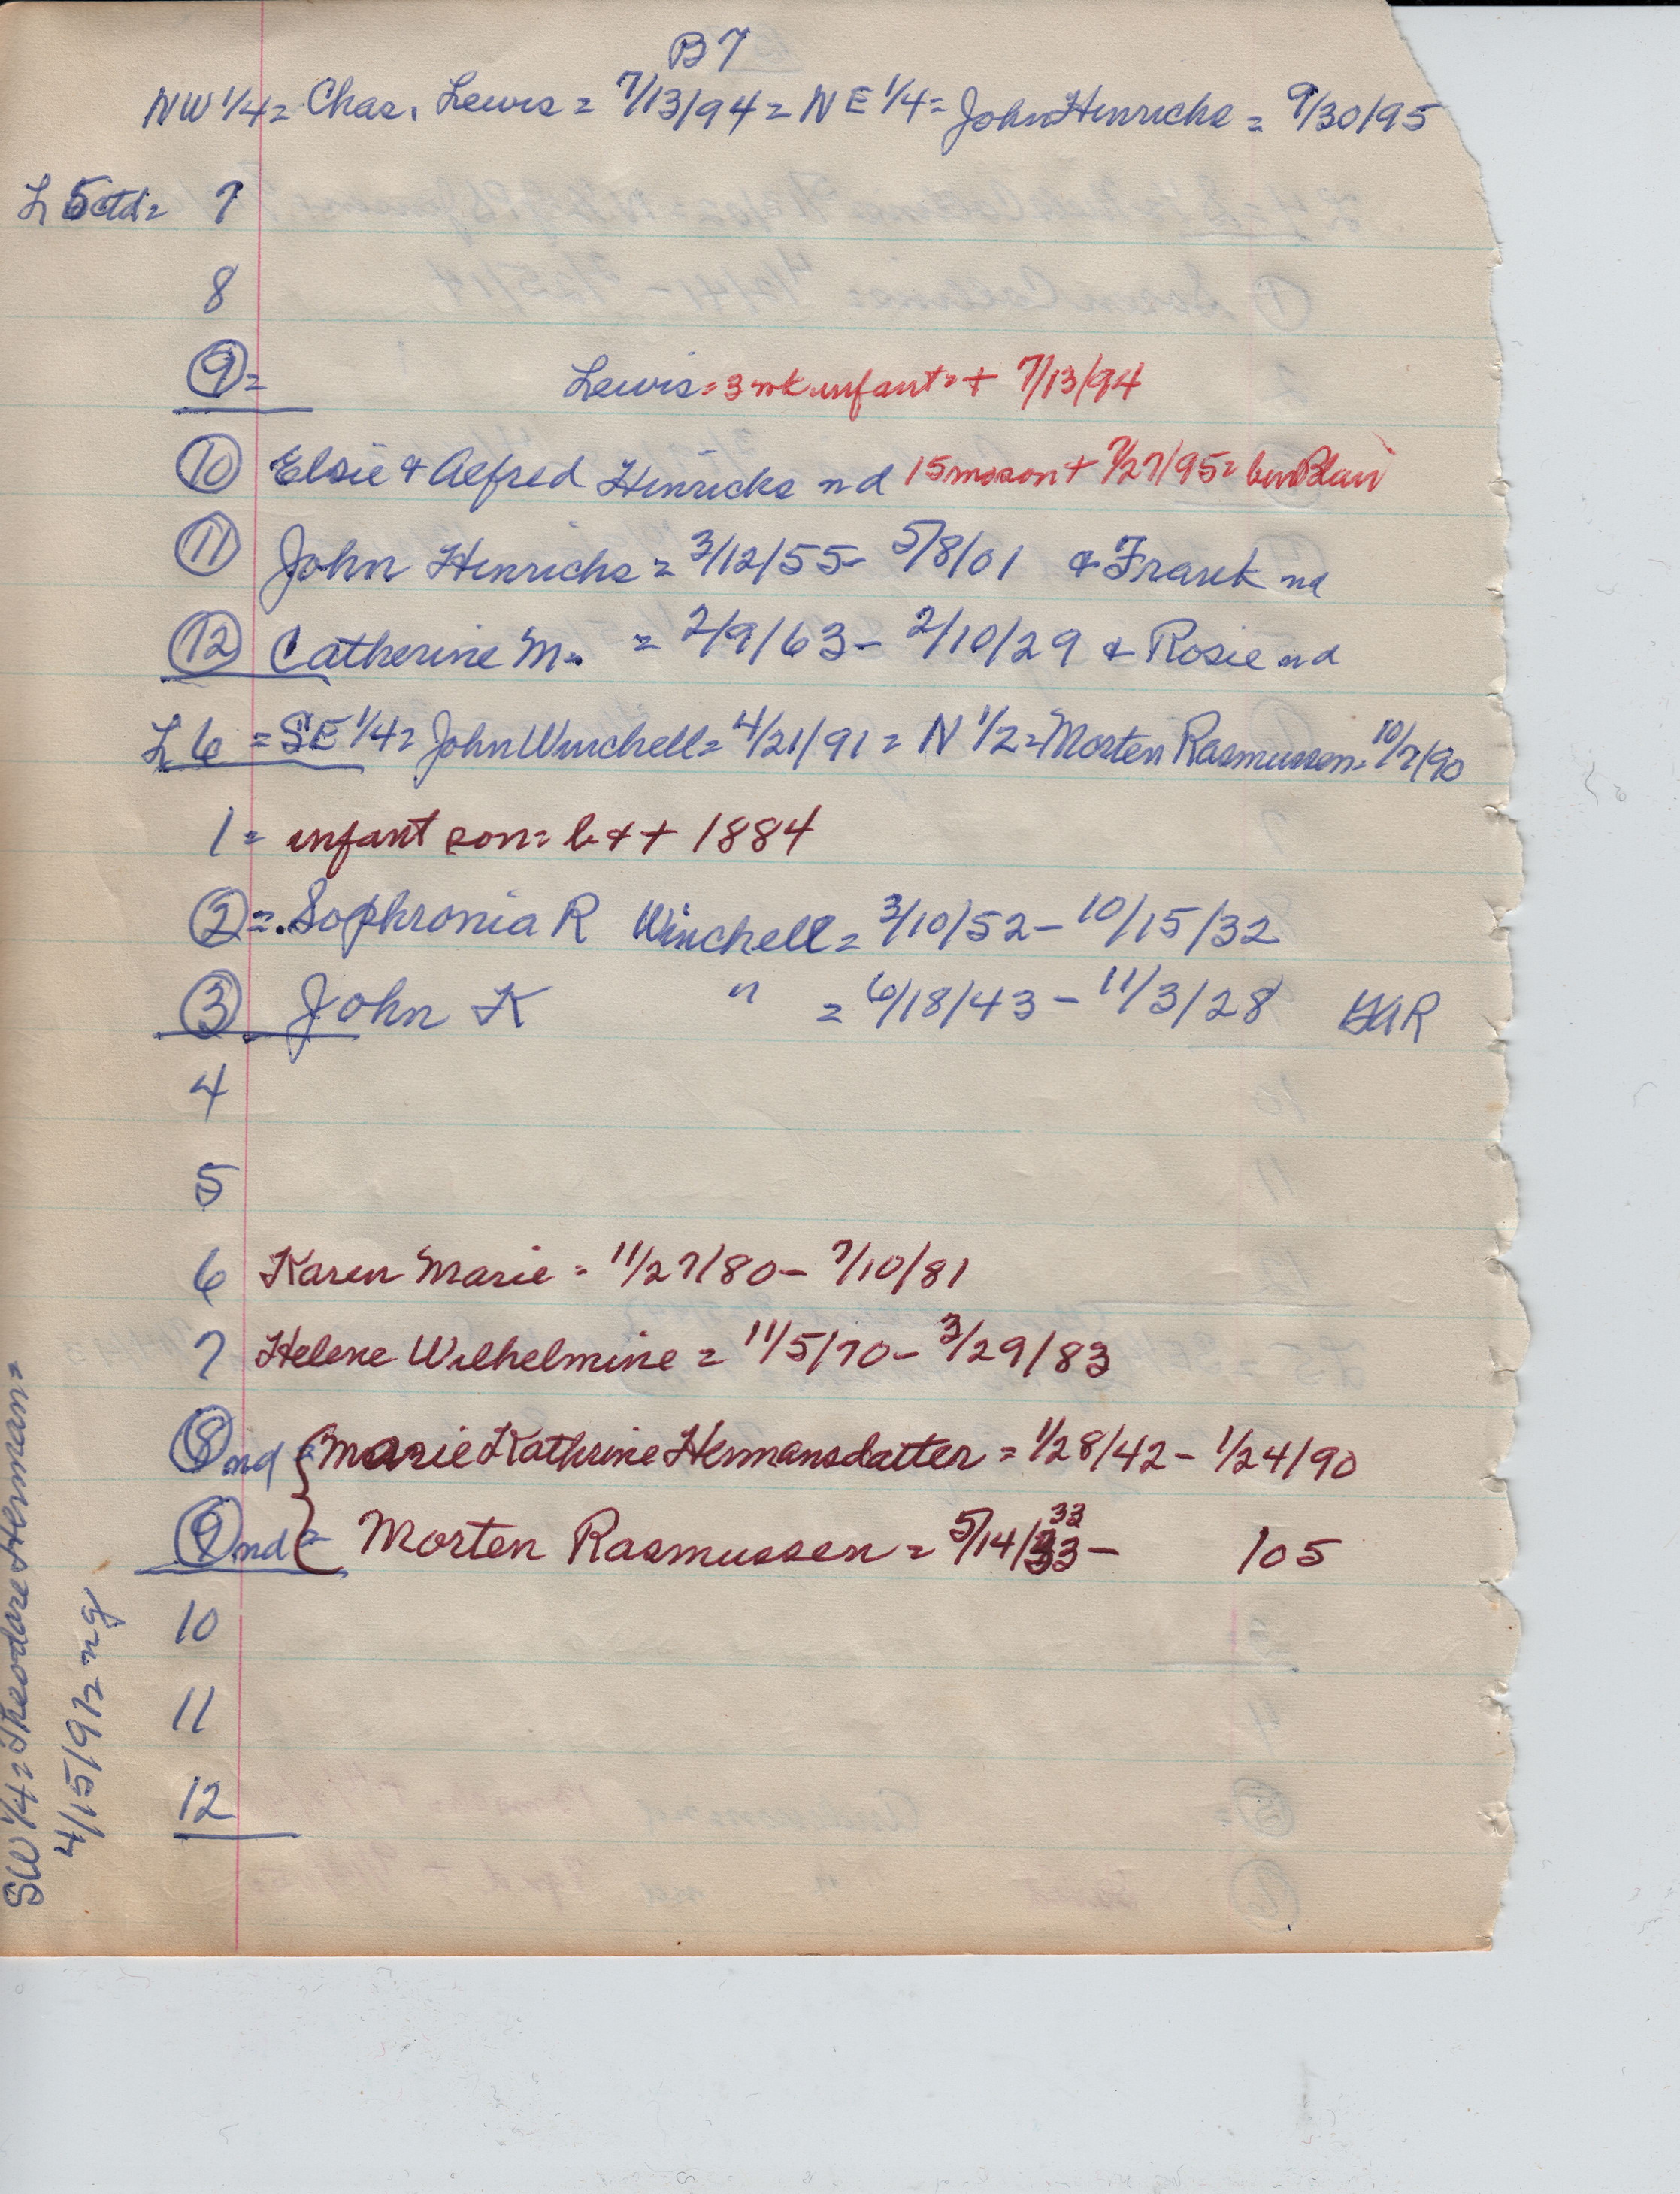 B7
NW 1/4 = Chas. Lewis = 7/13/94 = NE 1/4 = John Hinrichs = 9/30/95
L 5 ctd = 7
8
9 = Lewis = 3 wk infant = + 7/13/94
10 Elsie & Alfred Hinrichs nd 15 mo son + 7/27/95 = Blair
11 John Hinrichs = 3/12/55 - 5/8/01 & Frank nd
12 Catherine M. = 2/9/63 - 2/10/29 & Rosie nd
L 6 = SE 1/4 = John Winchell = 4/21/91 = N 1/2 = Morten Rasmussen = 10/7/90
1 = infant son = b + + 1884
2 = Sophronia R Winchell = 3/10/52 - 10/15/32
3 John K " = 6/18/43 - 11/3/28 GAR
4
5
6 Karen Marie = 11/27/80 - 7/10/81
7 Helene Wilhelmine = 11/5/70 - 3/29/83
8 nd = { Marie Kathrine Hermansdatter = 1/28/42 - 1/24/90
9 nd = { Morten Rasmussen = 5/14/33 - 105
33
10
11
12
SW 1/4 = Theodore Hermann =
4/15/912 = ng